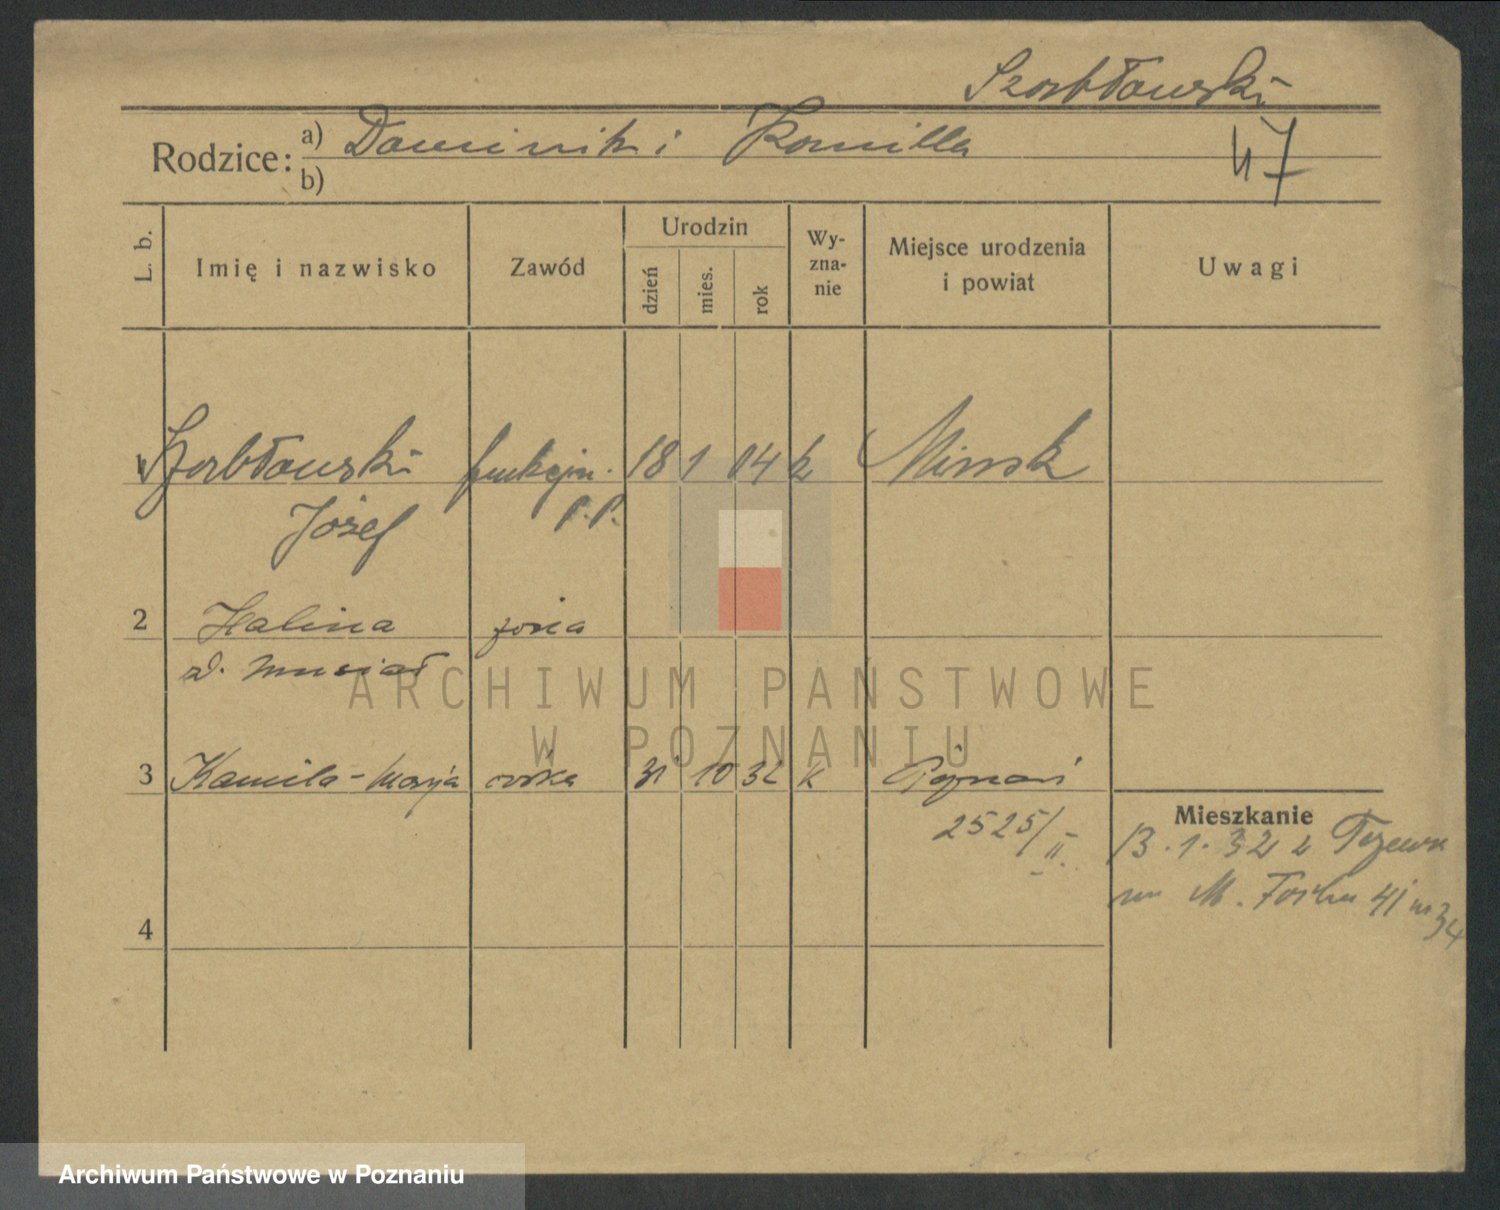 Szorbłowski
Rodzice: a) Dominik i Kamilla
b)
47
L. b.
Imię i nazwisko
Zawód
Urodzin
dzień
mies.
rok
Wy-
zna-
nie
Miejsce urodzenia
i powiat
Uwagi
1 Szorbłowski funkcjon. 18 1 04 k Mińsk
Józef P.P.
2 Halina żona
z d. Musiał
3 Kamila-Marja córka 31 10 32 k Poznań
2525/II.
Mieszkanie
13.1.32 z Tczewa
na M. Focha 41 m 34
4
ARCHIWUM PAŃSTWOWE
W POZNANIU
Archiwum Państwowe w Poznaniu